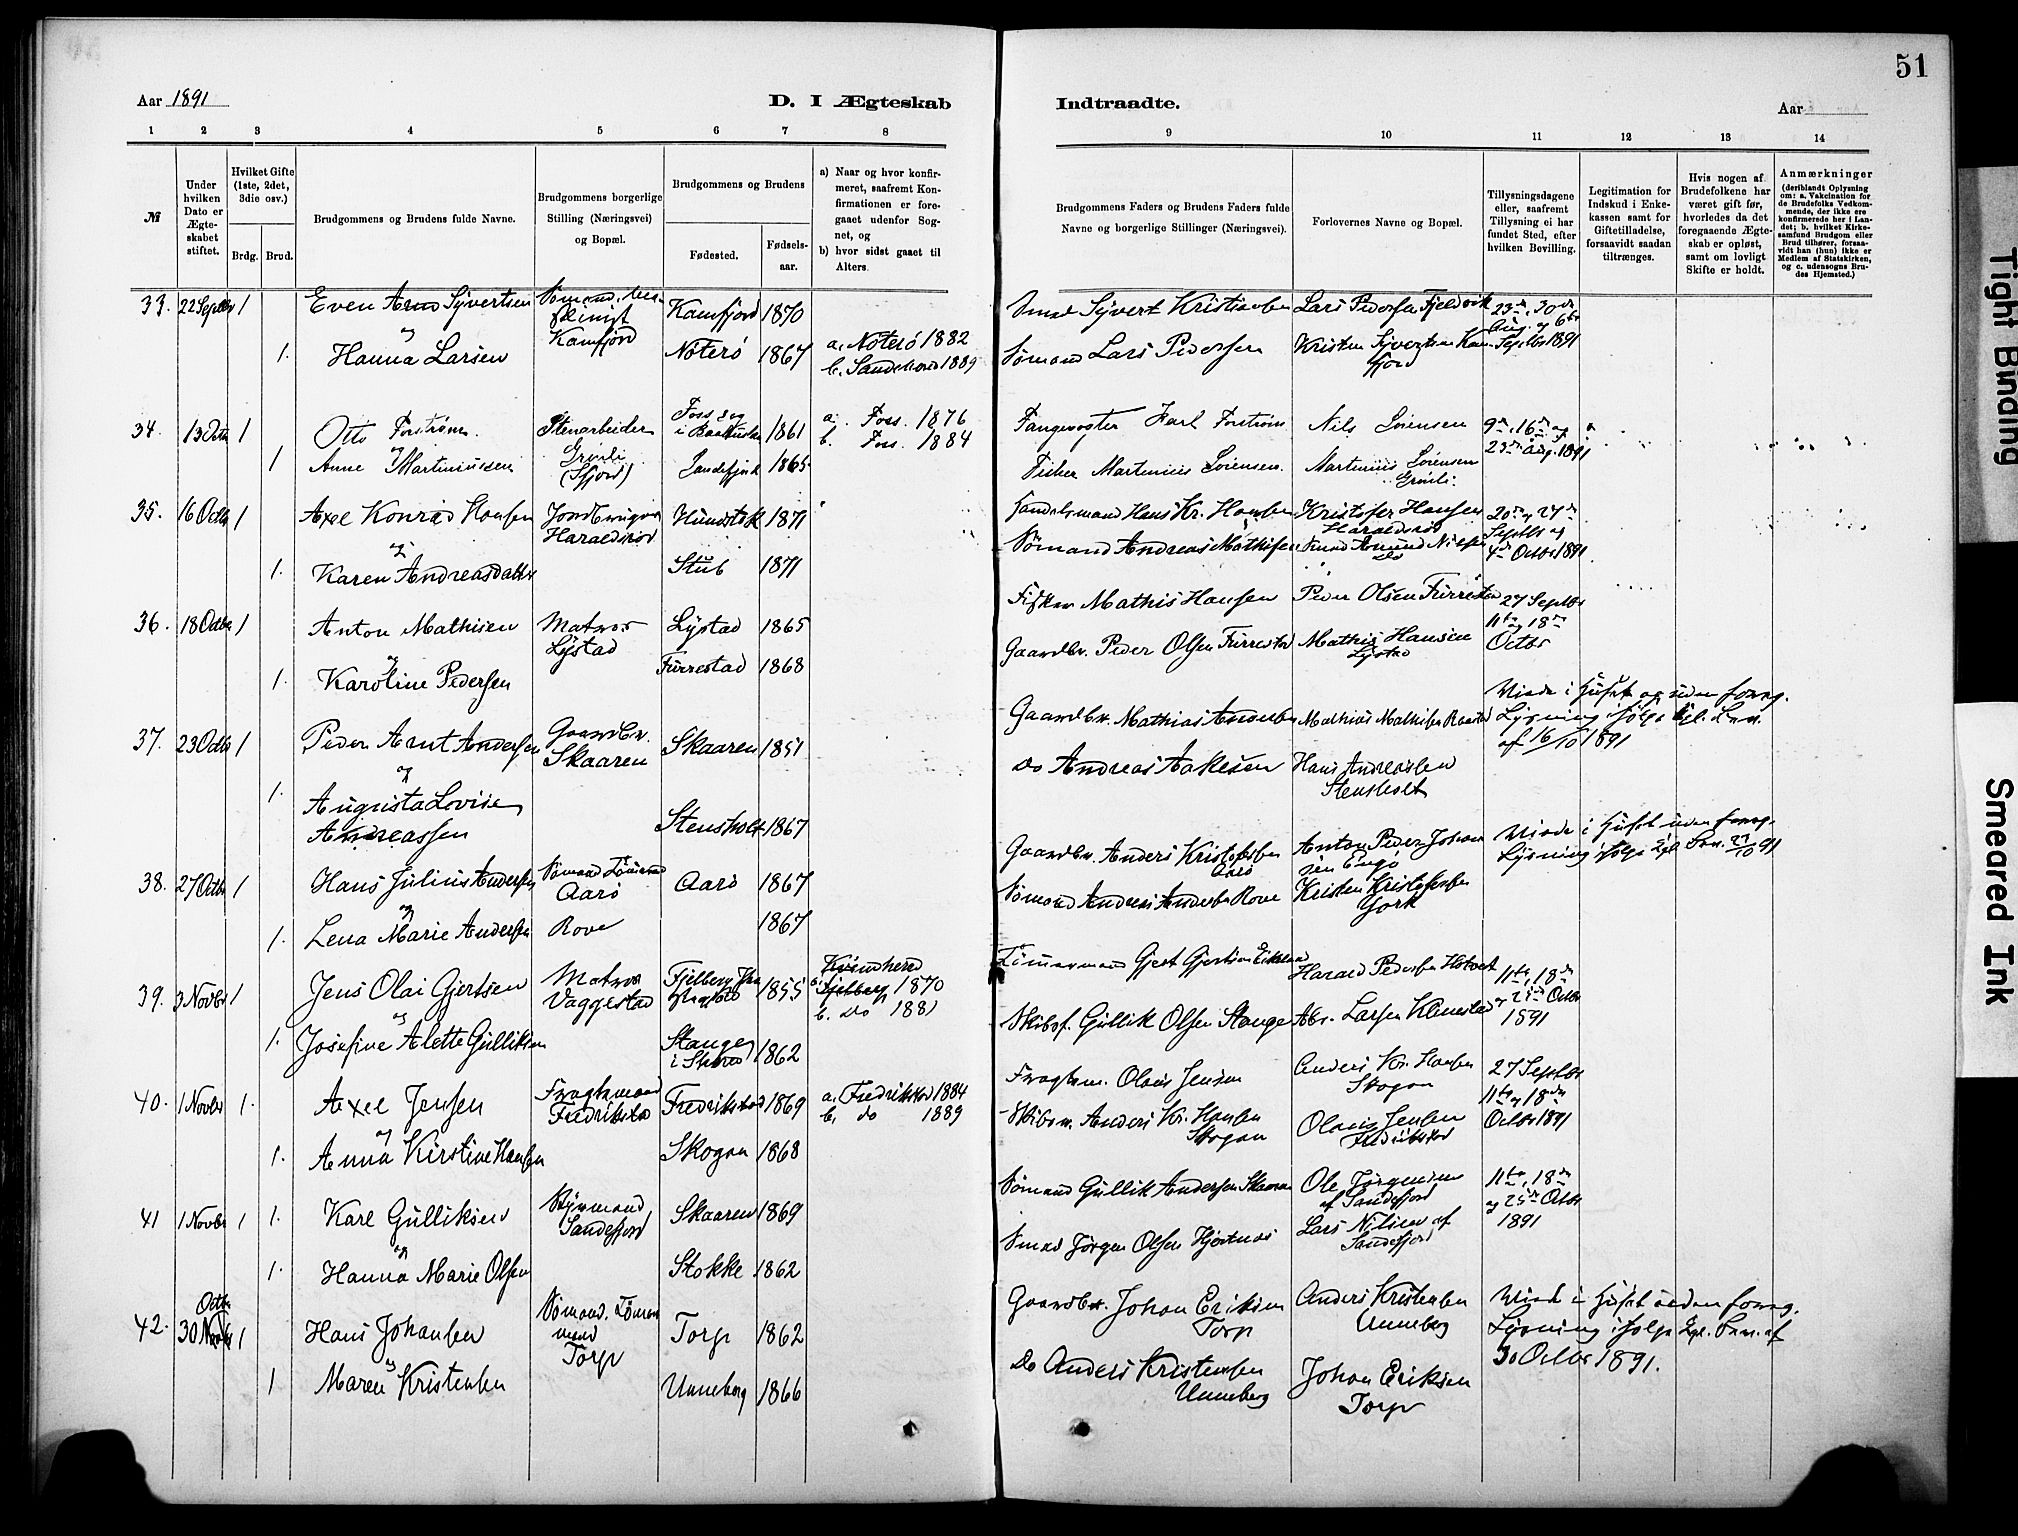 51
Aar 1891
D. I Ægteskab
Indtraadte.
Aar
1 2 3 4 5 6 7 8
9 10 11 12 13 14
№
Under hvilken Dato er Ægteskabet stiftet.
Hvilket Gifte (1ste, 2det, 3die osv.)
Brdg. Brud.
Brudgommens og Brudens fulde Navne.
Brudgommens borgerlige Stilling (Næringsvei) og Bopæl.
Brudgommens og Brudens
Fødested.
Fødselsaar.
a) Naar og hvor konfirmeret, saafremt Konfirmationen er foregaaet udenfor Sognet, og
b) hvor sidst gaaet til Alters.
Brudgommens Faders og Brudens Faders fulde Navne og borgerlige Stillinger (Næringsvei).
Forlovernes Navne og Bopæl.
Tillysningsdagene eller, saafremt Tillysning ei har fundet Sted, efter hvilken Bevilling.
Legitimation for Indskud i Enkekassen samt for Giftetilladelse, forsaavidt saadan tiltrænges.
Hvis nogen af Brudefolkene har været gift før, hvorledes da det foregaaende Ægteskab er opløst, samt om lovligt Skifte er holdt.
Anmærkninger
(deriblandt Oplysning om: a. Vakcination for de Brudefolks Vedkommende, der ikke ere konfirmerede her i Landet; b. hvilket Kirkesamfund Brudgom eller Brud tilhører, forsaavidt han (hun) ikke er Medlem af Statskirken, og c. udensogns Brudes Hjemsted.)
33. 22 Septbr 1 Even Sjvertsen Kamfjord 1870 Smed Sjvert Kristiansen Lars Pedersen Fjeldvik 23de, 30de
og Kamfjord Aug. og 6te
1. Hanna Larsen Noterö 1867 a. Noterö 1882 Sømand Lars Pedersen Kristen Sjvertsen Kam- Septbr 1891
b. Sandeherred 1889 fjord
34. 13 Octbr 1 Otto Forström Stenarbeider 1861 a. Foss. 1876 Fangevogter Karl Forström Nils Sörensen 9de, 16de og
og b. Foss. 1884 23de Aug. 1891
1 Anne Martiniussen Sandefjord 1865 Fisker Martinius Sörensen. Martinius Sörensen
35. 16 Octbr 1 Axel Konrad Hansen Haraldsröd 1871 Handelsmand Hans Kr. Hansen Kristofer Hansen 20de og 27de
og Haraldsröd Septbr og
1. Karen Andreasdatter Stub 1871 Sømand Andreas Mathisen 4de Octbr 1891
36. 18 Octbr 1 Anton Mathisen Matros Lystad 1865 Fisker Mathis Hansen Peder Olsen Furrestad 27 Septbr
og Lystad 11te og 18de
1. Karoline Pedersen Furrestad 1868 Gaardbr. Peder Olsen Furrestad Mathis Hansen Octbr
Lystad
37. 23 Octbr 1 Peder Arnt Andersen Gaardbr. Skaaren 1851 Gaardbr. Mathias Andersen Mathias Mathisen Viede i Huset og uden foreg.
og Skaaren Lysning ifølge kgl. Bev.
1. Augusta Lovise Do Andreas Aakesen Hans Andreassen af 16/10 1891
Andreassen Stensholt 1867 Stensholt
38. 27 Octbr 1 Hans Julius Andersen Sømand Aarö 1867 Gaardbr. Anders Kristofersen Anton Peder Johan- Viede i Huset uden foreg.
og Aarö Aarö sen Engö Lysning ifølge kgl. Bev. 27/10 91
1. Lena Marie Andersen Rove 1867 Sømand Andreas Andersen Rove Kristen Kristofersen
39. 3 Novbr 1 Jens Olai Gjertsen Matros Fjelberg 1855 1870 Tömmermand Gjert Gjertsen Harald Pedersen 11te, 18de
og Vaggestad b. Do 1881 og 25de Octbr
1. Josefine Alette Gulliksen Stange 1862 Skibsf. Gullik Olsen Stange Abr. Larsen Klinestad 1891
40. 1 Novbr 1. Axel Jensen Fragtemand Fredrikstad 1869 a. Fredrikstad 1884 Fragtem. Olaus Jensen Anders Kr. Hansen 27 Septbr
og Fredrikstad b. do 1889 Skogan 11te og 18de
1. Anna Kirstine Hansen Skogan 1868 Skibsm. Anders Kr. Hansen Olaus Jensen Octbr 1891
Skogan Fredrikstad
41 1 Novbr 1 1. Karl Gulliksen Styrmand Skaaren 1869 Sømand Gullik Andersen Skaaren Ole Jörgensen 11te, 18de
og Sandefjord af Sandefjord og 25de Octbr
1. Hanna Marie Olsen Stokke 1862 Smed Jörgen Olsen Hjertnæs Lars Nilsen af 1891
Sandefjord
42. 30 Octbr 1 Hans Johansen Sømand. Tömmermand Torp 1862 Gaardbr. Johan Eriksen Anders Kristensen Viede i Huset uden foreg.
og Torp Torp Unneberg Lysning ifølge kgl. Bev. af
1 Maren Kristensen Unneberg 1866 Do Anders Kristensen Johan Eriksen 30 Octbr 1891.
Unneberg Torp
Tight Binding
Smeared Ink